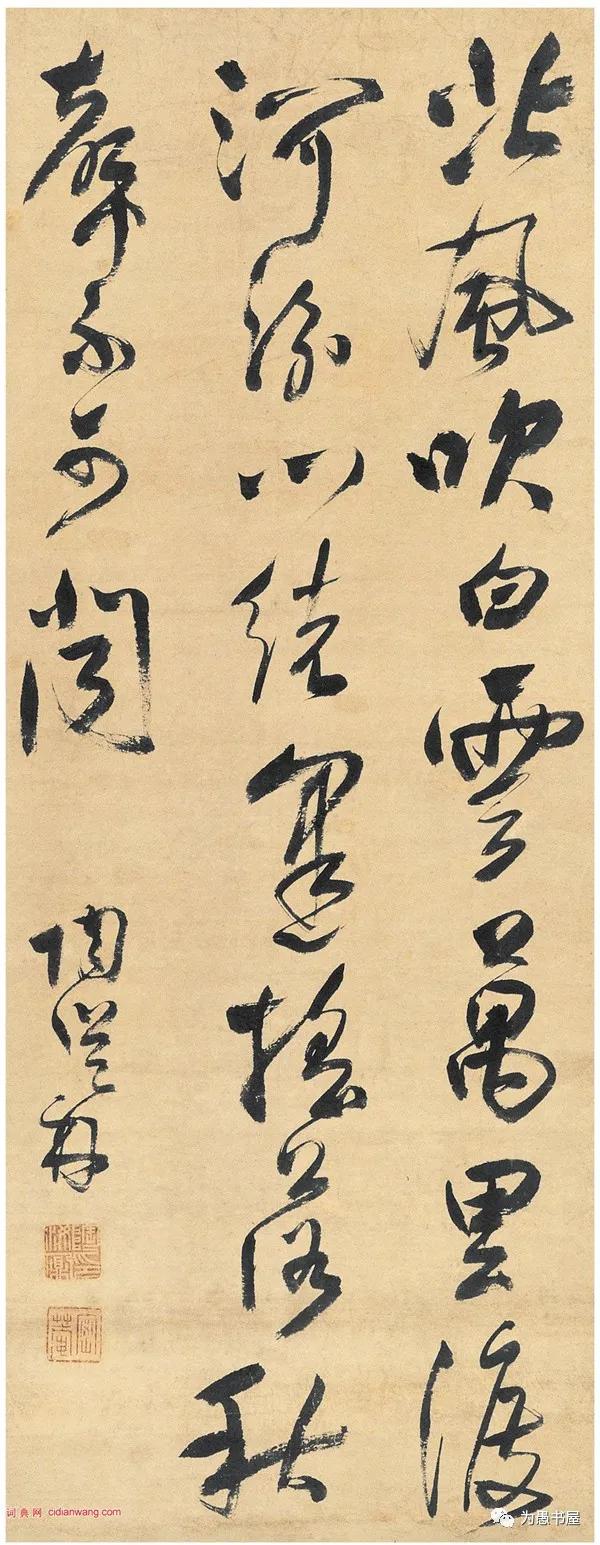 北風吹白雲萬里渡
河汾心緒逢搖落秋
聲不可聞
陶
词典网 cidianwang.com
为愚书屋